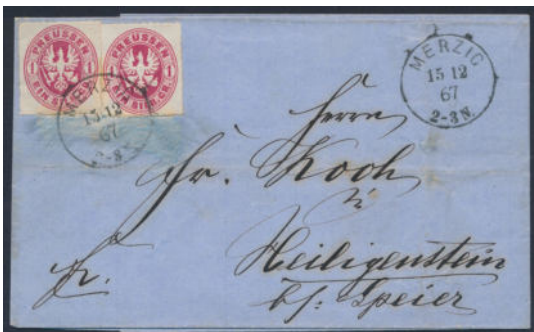 PREUSSEN PREUSSEN
1 1 1
EIN SILB.GR.
MERZIG
15 12
67
2-3 N.
MERZIG
15 12
67
2-3 N.
Herrn
Fr. Koch
in
Heiligenstein
b/: Speier
fr.